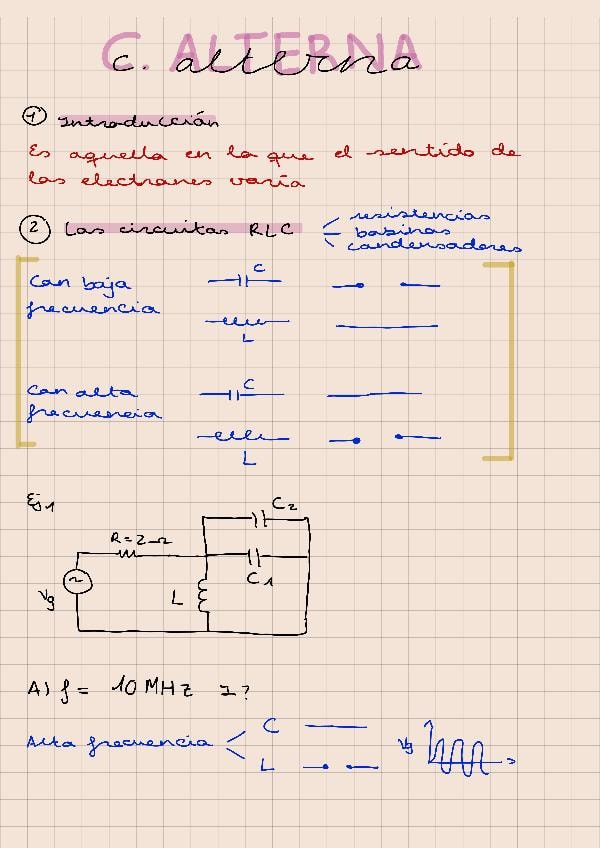 C. ALTERNA
C. alterna
1 Introducción
Es aquella en la que el sentido de
los electrones varía
2 Los circuitos RLC
resistencias
bobinas
condensadores
Con baja
frecuencia
C
L
Con alta
frecuencia
C
L
Ej 1
C2
R = 2 Ω
C1
L
Vg
A) f = 10 MHz I?
Alta frecuencia
C
L
Vg